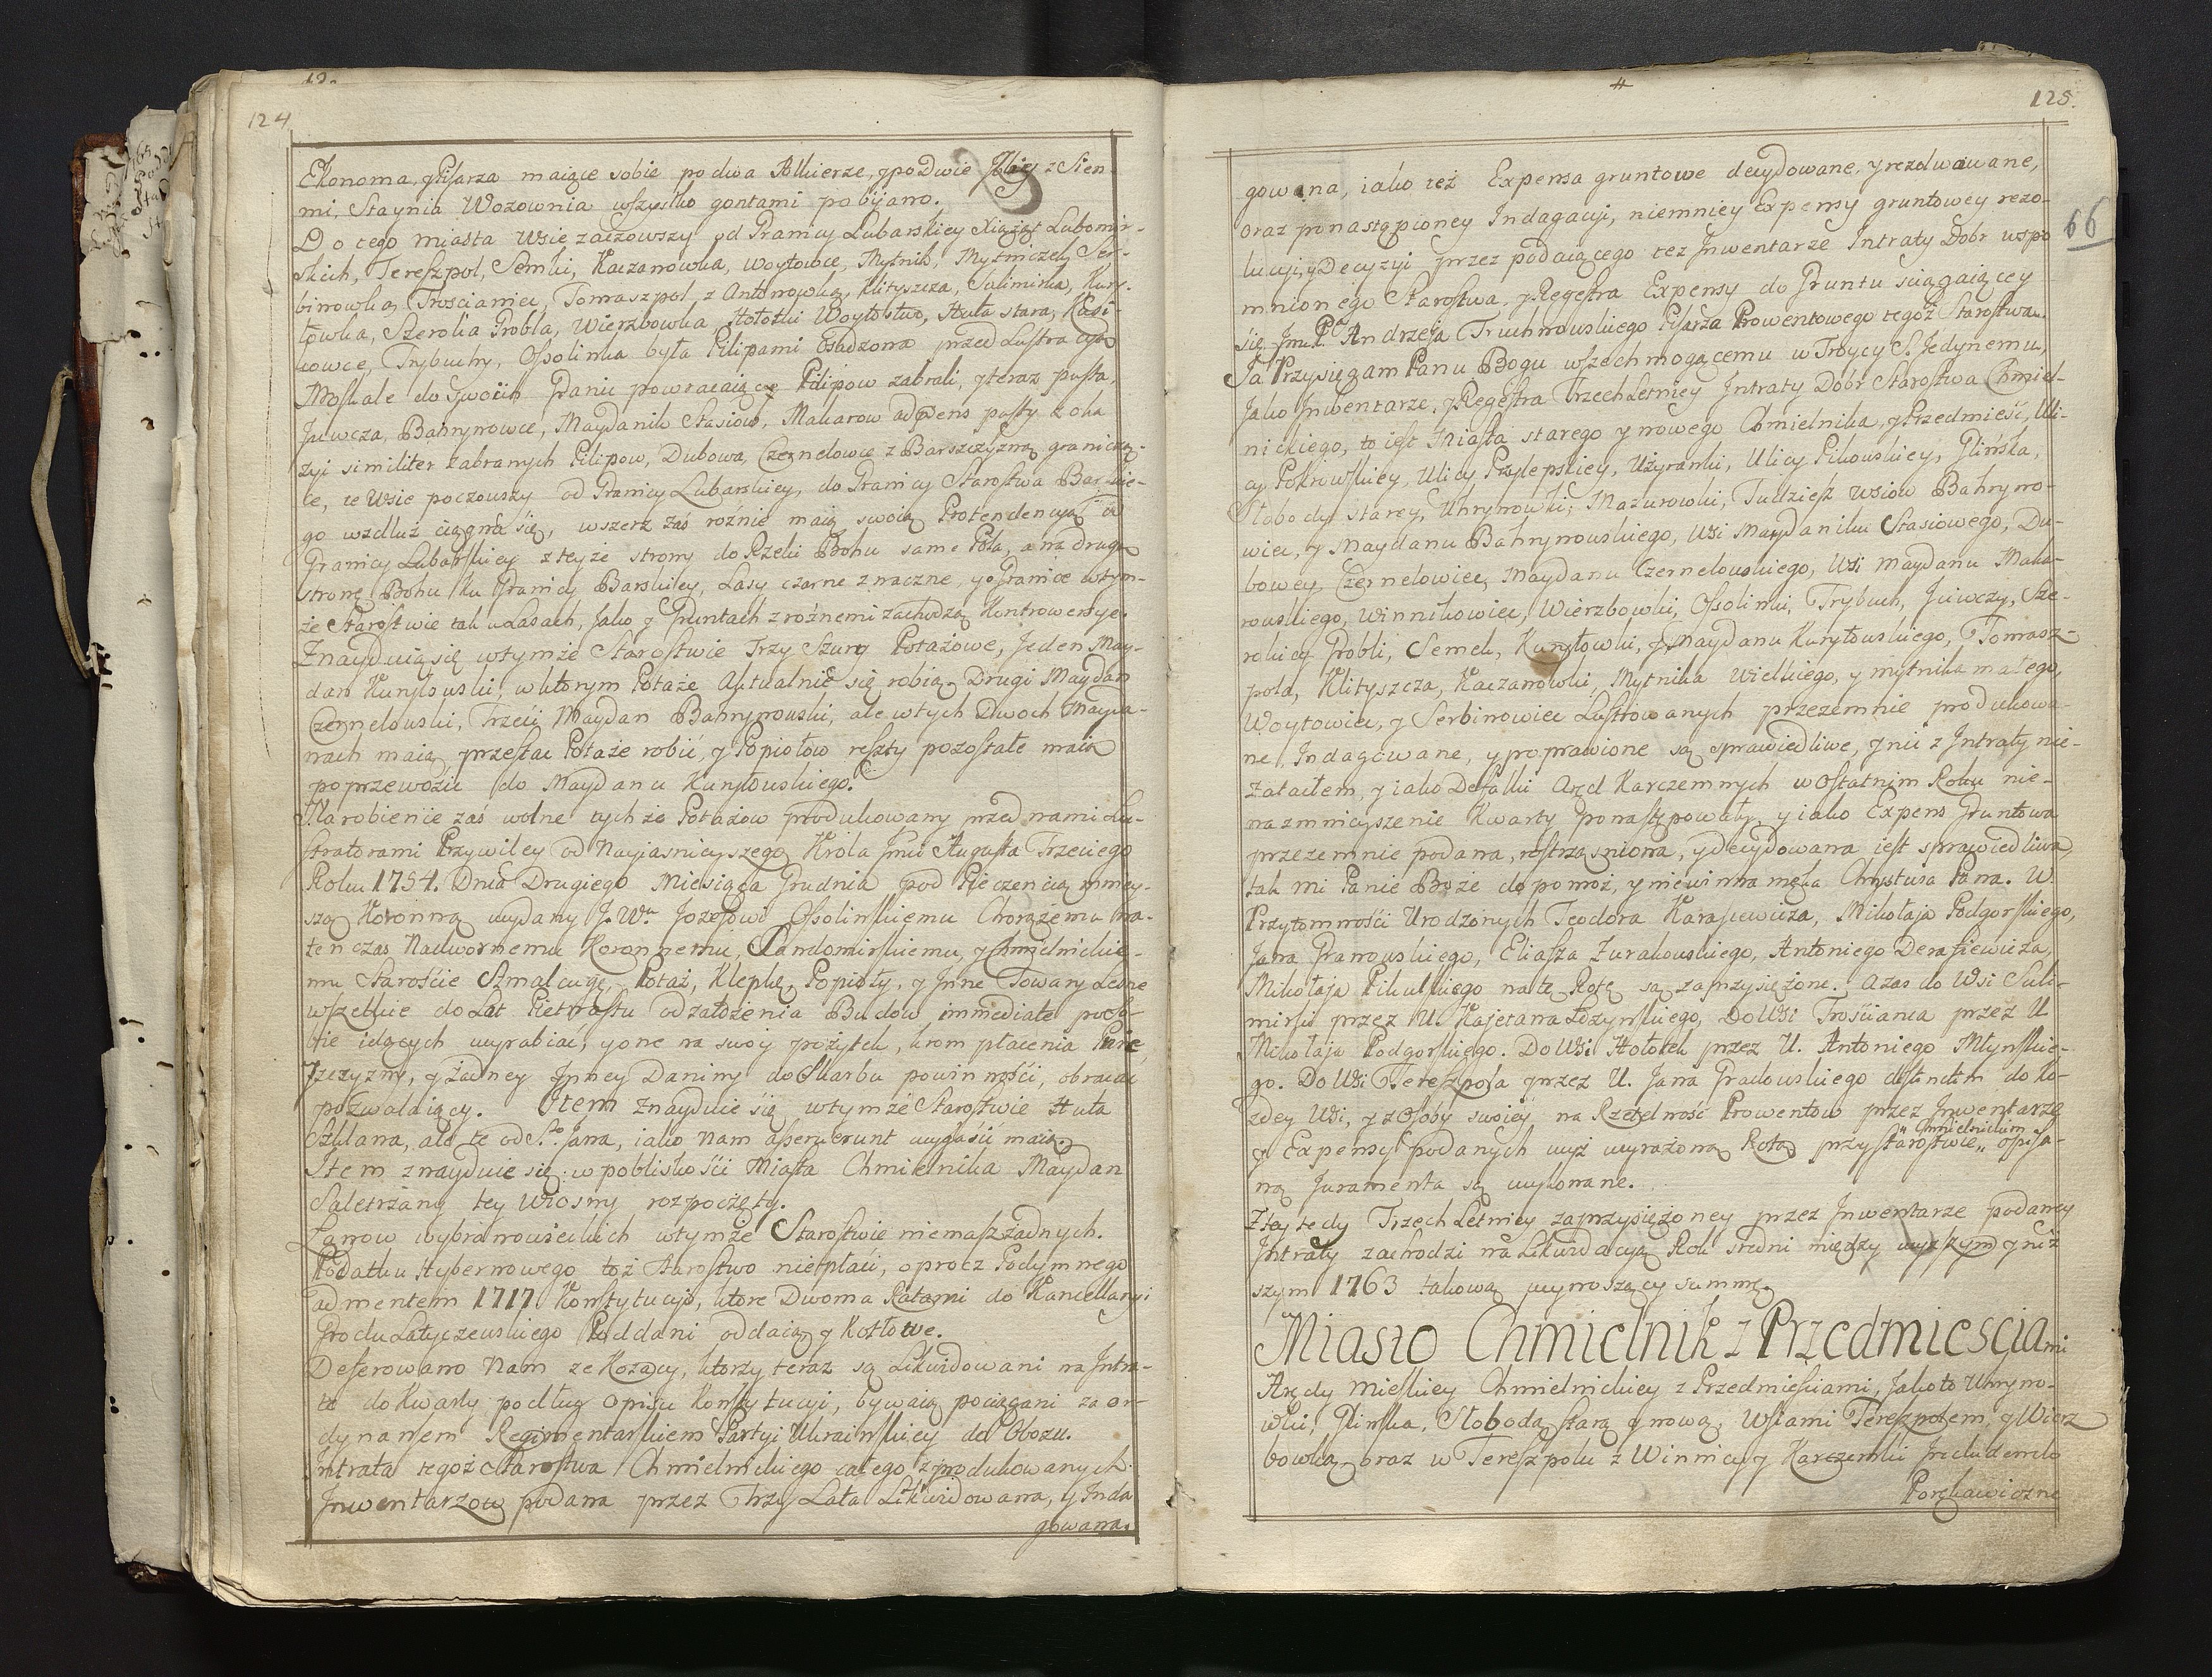 124
Ekonoma, y Pisarza maiące sobie po dwa Alkierze, y po Dwie Izbie z Sien-
mi, Staynia Wozownia wszystko gontami pobijano.
Do tego miasta Wsie zacząwszy od Granicy Lubarskiey Xiążąt Lubomir-
skich, Tereszpol, Semki, Kaczanowka, Woytowce, Mytnik, Mytniczek, Ser-
binowka, Trościaniec, Tomaszpol z Antonowką, Klityszcza, Sulimirka, Kury-
łowka, Szeroka Grobla, Wierzbowka, Hołotki Woytostwo, Huta stara,
kowce, Trybuchy, Ossolinka była Pilipami osadzona przed Lustracyą
Moskale do swoich Granic powracaiący Pilipow zabrali, y teraz pusta,
Juwcza, Bahrynowce, Maydanik Stasiow, Makarow adpens pusty z oka
zyi similiter zabranych Pilipow, Dubowa, Czernelowce z Barszczyzną granicza-
ce, te Wsie począwszy od Granicy Lubarskiey, do Granicy Starostwa Barskie-
go wzdłuż ciągną się, wszerz zaś rożnie maią swoią Protendencyą od
Granicy Lubarskiey z teyże strony do Rzeki Bohu same Pola, a na drugą
stronę Bohu ku Granicy Barskiey, Lasy czarne znaczne, y o Granice w tym-
że Starostwie tak w Lasach, jako y Gruntach z rożnemi zachodzą Kontrowersye.
Znayduią się w tymże Starostwie Trzy Szury Potażowe, Jeden May-
dan Kuryłowski, w ktorym Potaże Aktualnie się robią. Drugi Maydan
Czernelowski, Trzeci Maydan Bahrynowski, ale w tych Dwoch Mayda-
nach maią przestac Potaże robić, y Popiołow reszty pozostałe maią
poprzewozić do Maydanu Kuryłowskiego.
Na robienie zaś wolne tychże Potażow produkowany przed nami Lu-
stratorami Przywiley od Nayiasnieyszego Krola Jmci Augusta Trzeciego
Roku 1754. Dnia Drugiego Miesiąca Grudnia pod Pieczencią mniey-
szą Koronną wydany J. Wu Jozefowi Ossolinskiemu Chorążemu na-
tenczas Nadwornemu Koronnemu, Sandomirskiemu, y Chmielnickie-
mu Staroście Szmalcugę, Potaż, Klepkę, Popioły, y Inne Towary Leśne
wszelkie do Lat Pietnastu od założenia Budow immediate po so-
bie idących wyrabiać, y one na swoy pożytek, krom płacenia
y żadney Inney Daniny do Skarbu powinności, obracac
pozwalaiący. Item Znayduie się w tymże Starostwie Huta
Szklana, ale te od S. Jana, iako Nam asseruerunt wygaśić maią.
Item znayduie się w pobliskości Miasta Chmielnika Maydan
Saletrzany tey wiosny rozpoczęty.
Łanow wybranowieckich w tymże Starostwie niemasz żadnych.
Podatku Hybernowego toż Starostwo niepłaci, oprocz Podymnego
ad mentem 1717. Konstytucyi, ktore Dwoma Ratami do Kancellaryi
Grodu Latyczewskiego Poddani oddaią y Kotłowe.
Deferowano Nam ze Kozacy, ktorzy teraz są Likwidowani na Intra-
tę do Kwarty podług opisu Konstytucyi, bywaią pociągani za or-
dynansem Regimentarskiem Partyi Ukrainskiey do Obozu.
Intrata tegoż Starostwa Chmielnickiego całego z produkowanych
Jnwentarzow podana przez Trzy Lata Likwidowana, y Inda
gowana.
125.
66
gowana, iako też Expensa gruntowe decydowane, y rezolwowane,
oraz po nastąpioney Indagacyi, niemniey Expensy gruntowey rezo-
lucyi, y Decyzyi przez podaiącego tez Inwentarze Intraty Dobr wspo
mnionego Starostwa, y Regestra Expensy do Gruntu sciągaiącey
się Jmć Pa Andrzeja Truchnowskiego Pisarza Prowentowego tegoż Starostwa.
Ja Przysięgam Panu Bogu wszechmogącemu w Troycy S. Jedynemu,
Jako Inwentarze, y Regestra Trzech Letniey Intraty Dobr Starostwa Chmiel-
nickiego, to iest Miasta starego y nowego Chmielnika, y Przedmieść, Uli-
cy Pokrowskiey, Ulicy Przylepskiey, Użyranki, Ulicy Pikowskiey, Glińska,
Słobody starey, Uhrynowki, Mazurowki, Tudziesz Wsiow Bahryno-
wiec, y Maydanu Bahrynowskiego, Wsi Maydaniku Stasiowego, Du-
bowey, Czernelowiec, Maydanu Czernelowskiego, Wsi Maydanu Maka-
rowskiego, Winnikowiec, Wierzbowki, Ossolinki, Trybuch, Juwczy, Sze-
rokiey Grobli, Semek, Kuryłowki, y Maydanu Kuryłowskiego, Tomasz-
pola, Klityszcza, Kaczanowki, Mytnika Wielkiego, y mytnika małego,
Woytowiec, y Serbinowiec Lustrowanych przezemnie produkowa-
ne, Indagowane, y poprawione są sprawiedliwe, y nic z Intraty nie-
zataiłem, y iako Defalki Aręd Karczemnych w ostatnim Roku nie-
na zmnieyszenie Kwarty ponastępowały, y iako Expens Gruntowa
przezemnie podana, rostrząsniona, y decydowana iest sprawiedliwa,
tak mi Panie Boże dopomoż, y niewinna męka Chrystusa Pana. W
Przytomności Urodzonych Teodora Karasiewicza, Mikołaja Podgorskiego,
Jana Granowskiego, Eliasza Zurakowskiego, Antoniego Derasiewicza,
Mikołaja Pikulskiego na tę Rotę są zaprzysiężone. A zas do Wsi Suli-
mirki przez U. Kajetana Łozynskiego, Do Wsi Trościanca przez U
Mikołaja Podgorskiego. Do Wsi Hołotek przez U. Antoniego Młynskie-
go. Do Wsi Tereszpola przez U. Jana Gradowskiego distinctim do ka-
zdey Wsi, y z Osoby swoiey na Rzetelność Prowentow przez Inwentarze
y Expensy podanych wyż wyrażoną Rotą przy Starostwie „ Chmielnickim opisa-
ną Juramenta są wykonane.
Z tey tedy Trzech Letniey zaprzysiężoney przez Inwentarze podaney
Intraty zachodzi na Likwidacyą Rok sredni między wyższym y niż
szym 1763 takową wynoszący summę.
Miasto Chmielnik z Przedmiesciami
Arędy Mieskiey Chmielnickiey z Przedmiesciami, Jako to Uhryno-
wki, Glinska, Słobodą starą y nową, Wsiami Tereszpolem, y Wierz
bowką oraz w Tereszpolu z Winnicą y Karczemki Includendo
Porękawiczne